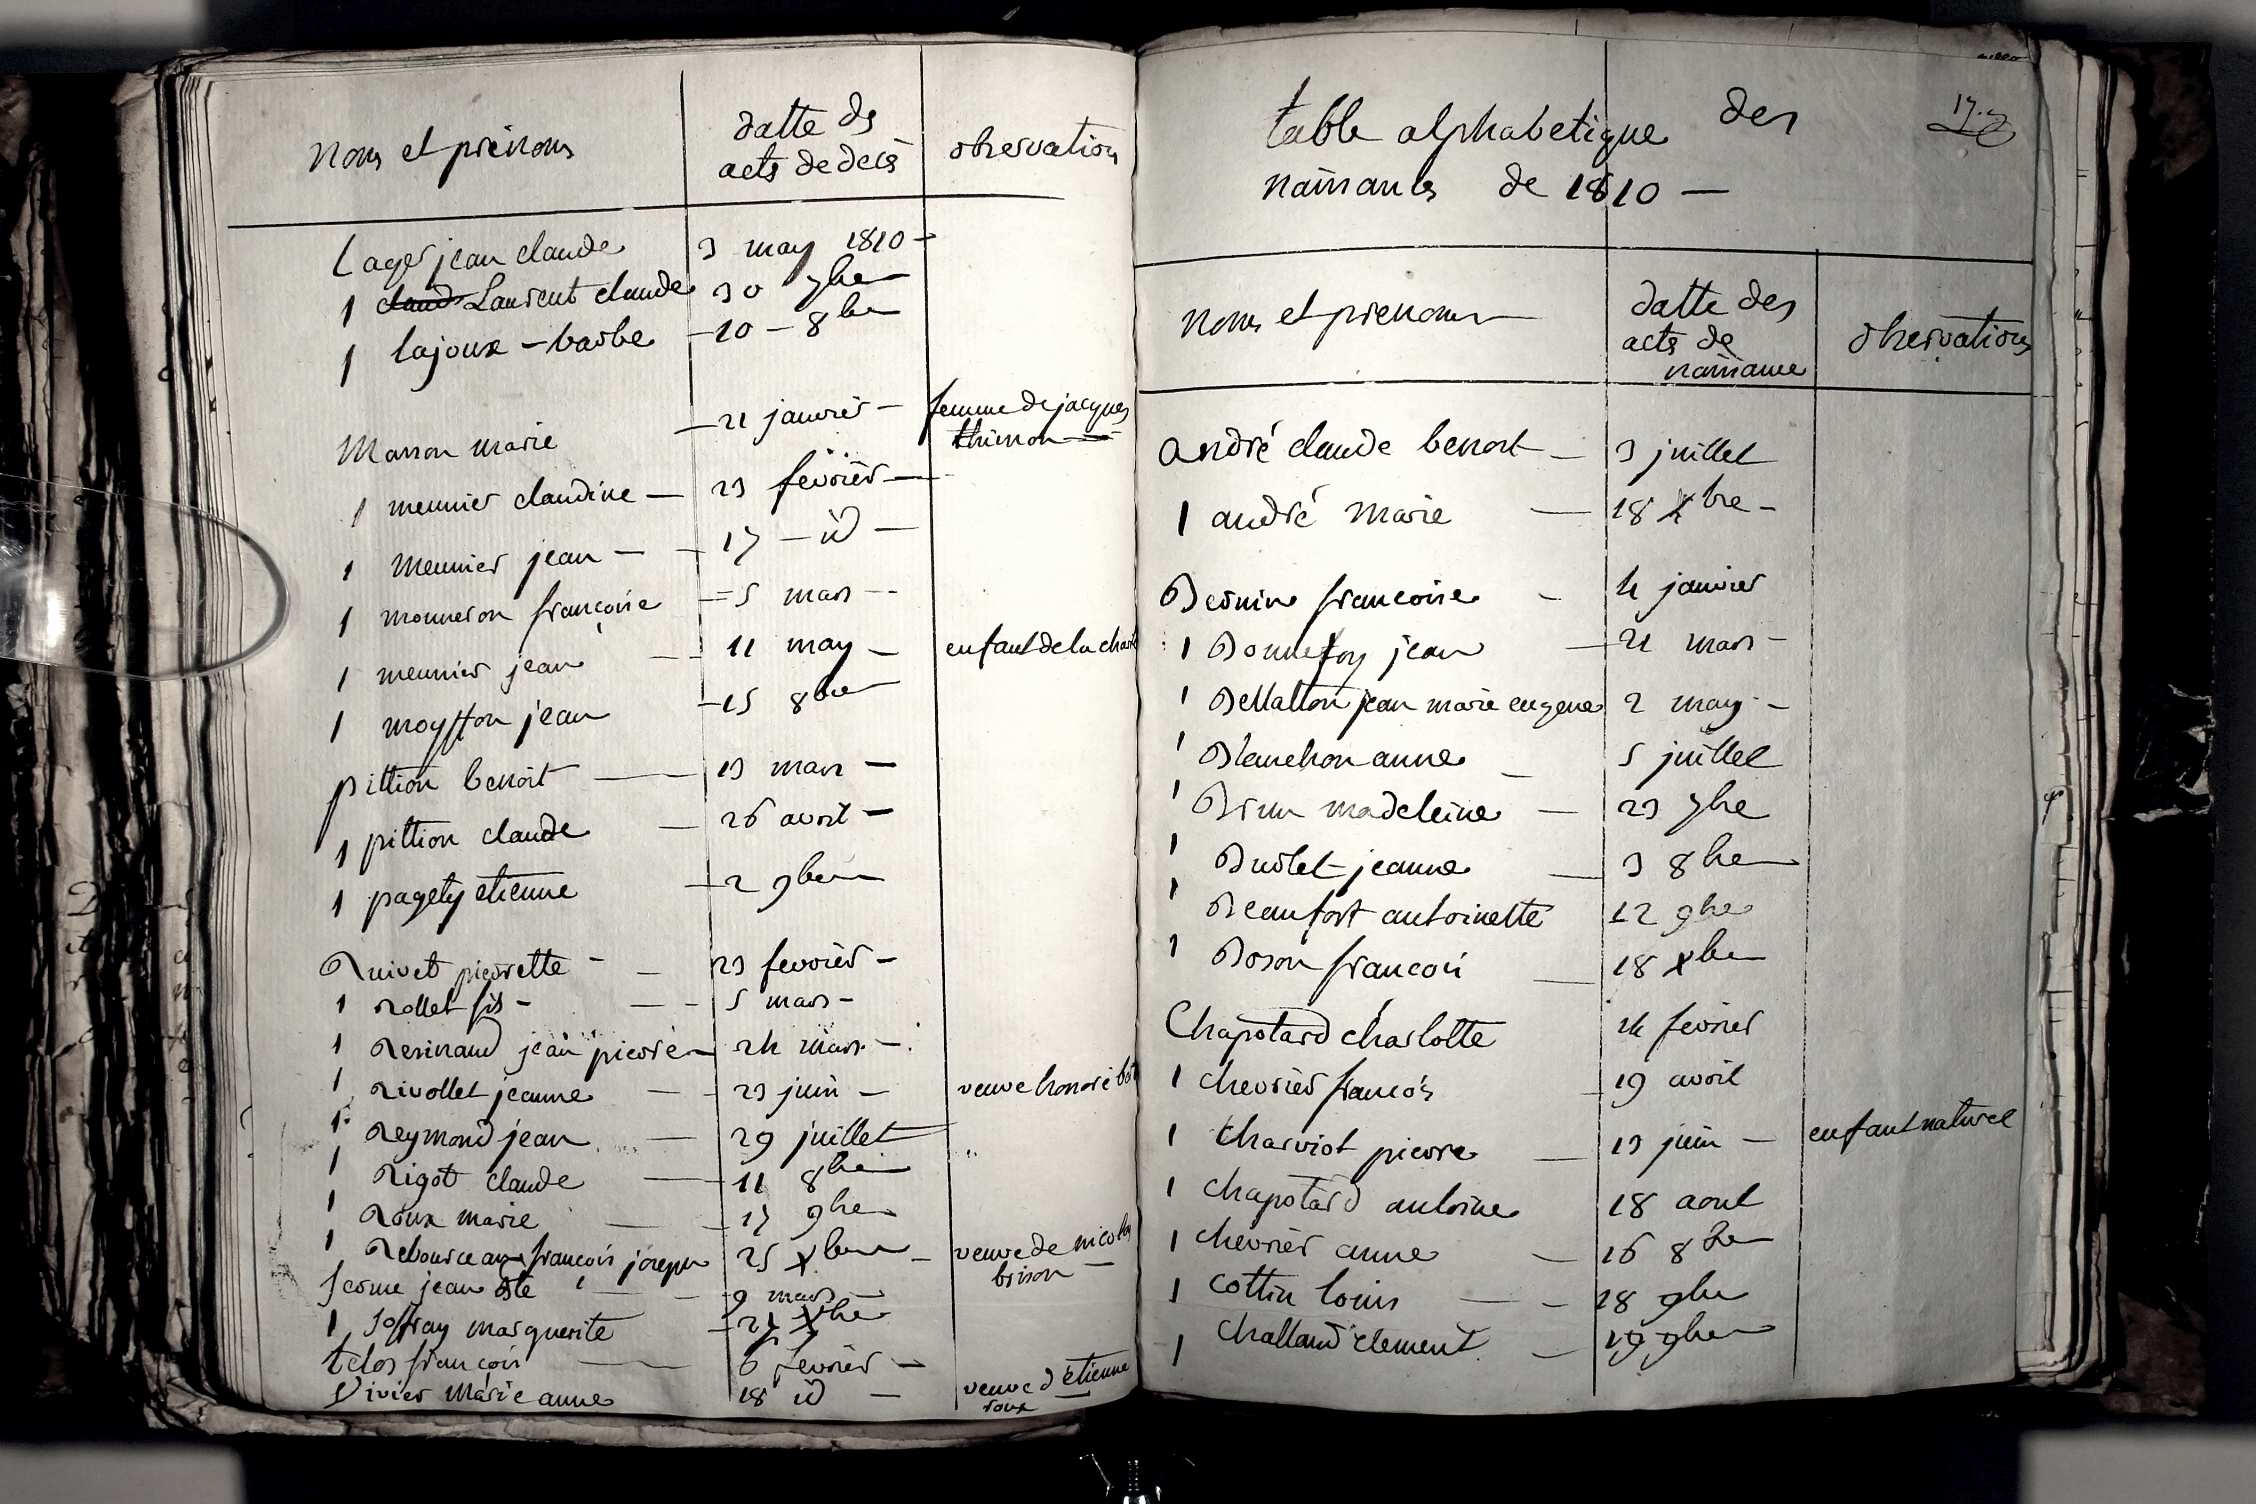 noms et prénoms
datte des
acts de decès
observations
Lager jean claude 3 may 1810 -
1 claude Laurent claude 30 7bre
1 lajoux - barbe - 10 - 8bre
Manon marie - 21 janvier - femme de jacques
thimon
1 meunier claudine - 23 fevrièr -
1 Meunier jean - - 17 - id -
1 monneron francoise = 5 mars - -
1 meunier jean - 11 may - enfant de la charité
1 moysson jean - 15 8bre
pittion benoit - 13 mars -
1 pittion claude - 26 avril -
1 pagety etienne - 2 9bre
Ruivet pierrette - - 23 fevrièr -
1 Rollet fils - - - 5 mars -
1 Resinaud jean pierre 24 mars -
1 Rivollet jeanne - - 23 juin - veuve honoré
1 Reymond jean - 29 juillet
1 Rigot claude - 11 8bre
1 Roux marie - - 17 9bre
1 Rebourceau françois joseph 25 xbre - veuve de nicolas
brison -
Scome jean Bte - - 9 mars -
1 Joffray marguerite - 24 xbre
telos francois - 6 fevrièr -
Vivier Marie anne 18 id - veuve d'étienne
roux
table alphabetique des
naissances de 1810 -
17.
noms et prenoms
datte des
acts de
naissance
observations
andré claude benoit - 3 juillet
1 andré Marie - 18 xbre -
Bernin francoise - 4 janvier
1 Bonnefoy jean - 21 mars -
1 Bellatton jean marie eugene 2 may -
1 Blanchon anne - 5 juillet
1 Brun madeleine - 23 7bre
1 Burlet jeanne - 3 8bre
1 Beaufort antoinette 12 9bre
1 Boson francois - 18 xbre
Chapotard charlotte 14 fevrier
1 chevrièr francois - 19 avril
1 Charviot pierre - 13 juin - enfant naturel
1 chapotard antoine 18 aout
1 chevrièr anne - 16 8bre
1 cottin louis - - 18 9bre
1 challand clement - 19 9bre